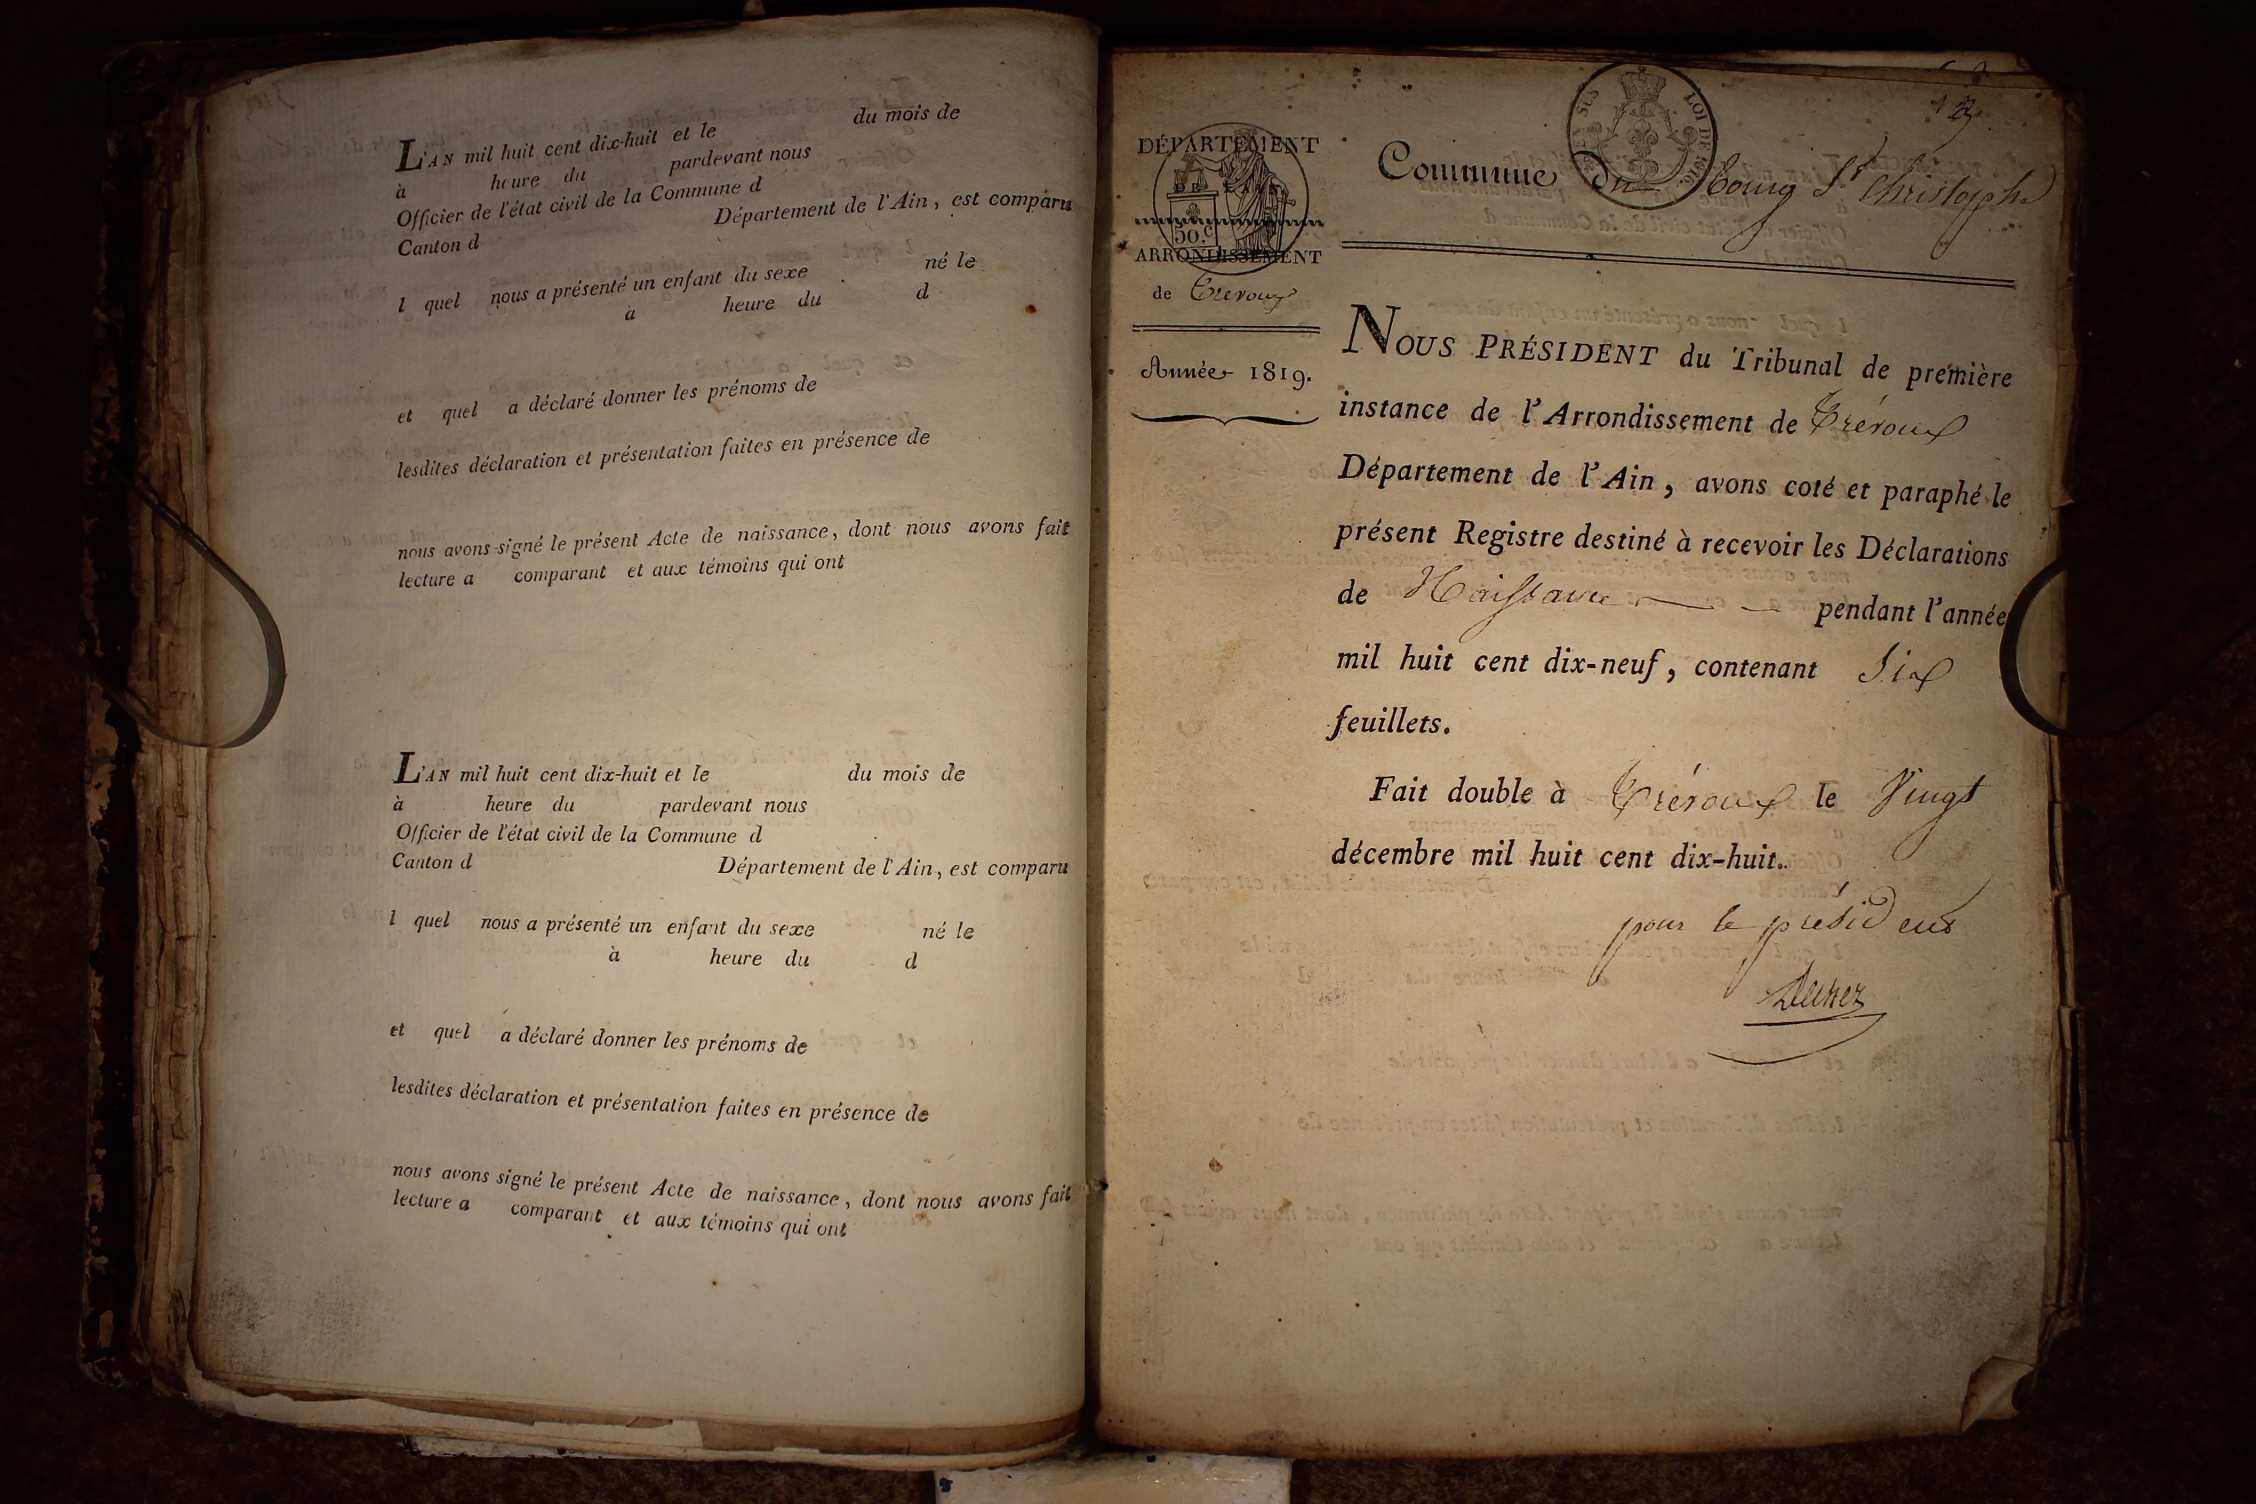 L'AN mil huit cent dix-huit et le du mois de
à heure du pardevant nous
Officier de l'état civil de la Commune d
Canton d Département de l'Ain, est comparu
l quel nous a présenté un enfant du sexe né le
à heure du d
et quel a déclaré donner les prénoms de
lesdites déclaration et présentation faites en présence de
nous avons signé le présent Acte de naissance, dont nous avons fait
lecture a comparant et aux témoins qui ont
L'AN mil huit cent dix-huit et le du mois de
à heure du pardevant nous
Officier de l'état civil de la Commune d
Canton d Département de l'Ain, est comparu
l quel nous a présenté un enfant du sexe né le
à heure du d
et quel a déclaré donner les prénoms de
lesdites déclaration et présentation faites en présence de
nous avons signé le présent Acte de naissance, dont nous avons fait
lecture a comparant et aux témoins qui ont
DÉPARTEMENT
DE L'AIN
50.c
ARRONDISSEMENT
de Trevoux
Année 1819.
LOI DE 1816
Commune du Bourg St Christophe
NOUS PRÉSIDENT du Tribunal de première
instance de l'Arrondissement de Trévoux
Département de l'Ain, avons coté et paraphé le
présent Registre destiné à recevoir les Déclarations
de Naissance pendant l'année
mil huit cent dix-neuf, contenant Six
feuillets.
Fait double à Trévoux le Vingt
décembre mil huit cent dix-huit.
pour le président